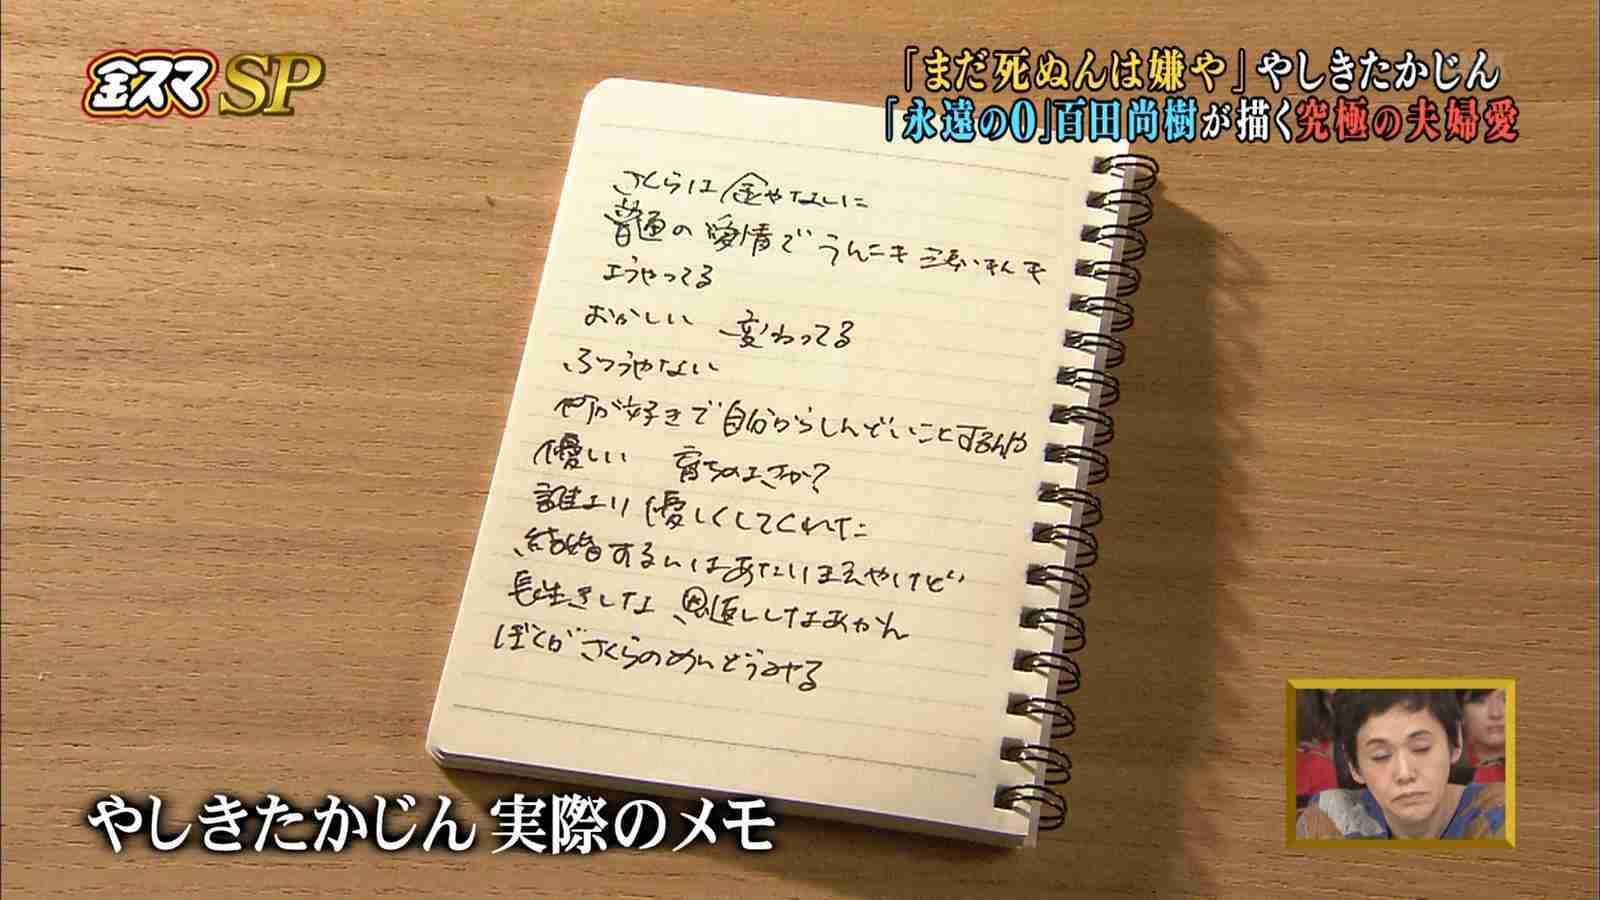 金スマSP
「まだ死ぬんは嫌や」やしきたかじん
「永遠の0」百田尚樹が描く究極の夫婦愛
さくらは金やなしに
普通の愛情でうんこも
ようやってる
おかしい 変わってる
ふつうやない
が好きで自分からしんどいことするんや
優しい 育ちのよさか?
誰より優しくしてくれた
結婚するんはあたりまえやけど
長生きしたな 恩返ししたなあかん
ぼくがさくらのめんどうみる
やしきたかじん 実際のメモ